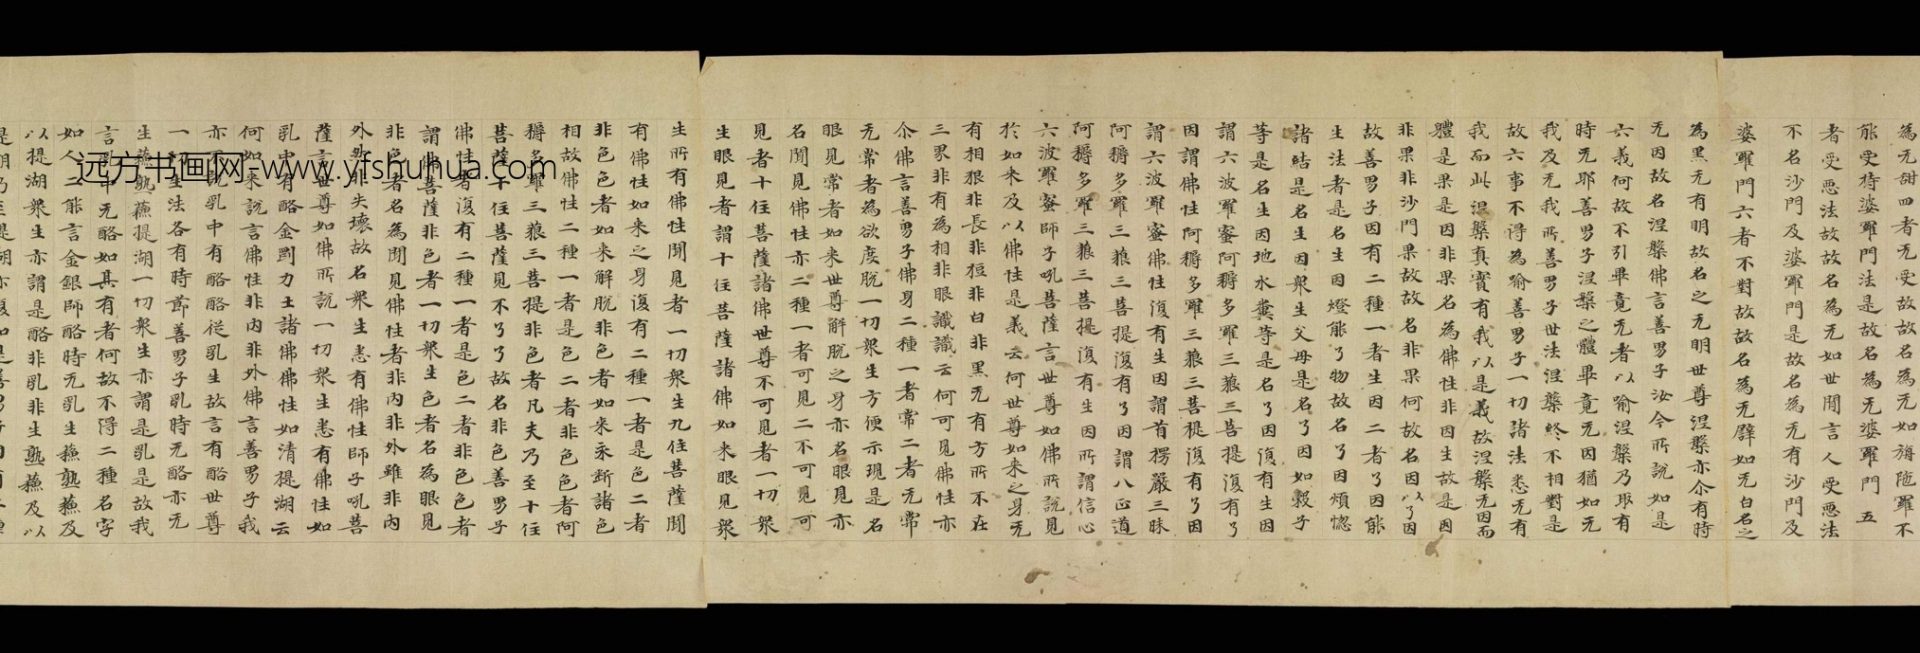 為无甜四者无受故故名為无如旃陁羅不
能受持婆羅門法是故名為无婆羅門五
者受悪法故故名為无如世間言人受悪法
不名沙門及婆羅門是故名為无有沙門及
婆羅門六者不對故故名為无譬如无白名之
為黒无有明故名之无明世尊涅槃亦尒有時
无因故名涅槃佛言善男子汝今所說如是
六義何故不引畢竟无者以喻涅槃乃取有
時无耶善男子涅槃之體畢竟无因猶如无
我及无我所善男子世法涅槃終不相對是
故六事不得為喻善男子一切諸法悉无有
我而此涅槃真實有我以是義故涅槃无因而
體是果是因非果名為佛性非因生故是因
非果非沙門果故故名非果何故名因以了因
故善男子因有二種一者生因二者了因能
生法者是名生因燈能了物故名了因煩惱
諸結是名生因衆生父母是名了因如穀子
等是名生因地水糞等是名了因復有生因
謂六波羅蜜阿耨多羅三藐三菩提復有了
因謂佛性阿耨多羅三藐三菩提復有了因
謂六波羅蜜佛性復有生因謂首楞嚴三昧
阿耨多羅三藐三菩提復有了因謂八正道
阿耨多羅三藐三菩提復有生因所謂信心
六波羅蜜師子吼菩薩言世尊如佛所說見
於如来及以佛性是義云何世尊如来之身无
有相狠非長非短非白非黒无有方所不在
三界非有為相非眼識識云何可見佛性亦
尒佛言善男子佛身二種一者常二者无常
无常者為欲度脱一切衆生方便示現是名
眼見常者如来世尊解脱之身亦名眼見亦
名聞見佛性亦二種一者可見二不可見可
見者十住菩薩諸佛世尊不可見者一切衆
生眼見者謂十住菩薩諸佛如来眼見衆
生所有佛性聞見者一切衆生九住菩薩聞
有佛性如来之身復有二種一者是色二者
非色色者如来解脱非色者如来永断諸色
相故佛性二種一者是色二者非色色者阿
耨多羅三藐三菩提非色者凡夫乃至十住
菩薩十住菩薩見不了了故名非色善男子
佛性者復有二種一者是色二者非色色者
謂佛菩薩非色者一切衆生色者名為眼見
非色者名為聞見佛性者非內非外雖非內
外然非失壊故名衆生悉有佛性師子吼菩
薩言世尊如佛所說一切衆生悉有佛性如
乳中有酪金剛力士諸佛佛性如清提湖云
何如来說言佛性非內非外佛言善男子我
亦不說乳中有酪酪従乳生故言有酪世尊
一切生法各有時節善男子乳時无酪亦无
生蘓熟蘓提湖一切衆生亦謂是乳是故我
言乳中无酪如其有者何故不得二種名字
如人二能言金銀師酪時无乳生蘓熟蘓及
以提湖衆生亦謂是酪非乳非生熟蘓及以
远方书画网-www.yfshuhua.com